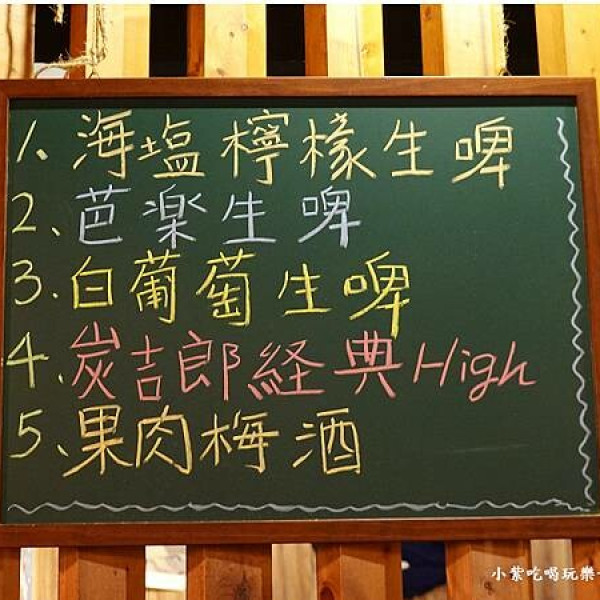 1、海塩檸檬生啤
2、芭楽生啤
3.白葡萄生啤
4.炭吉郎経典High
5、果肉梅酒
小紫吃喝玩樂